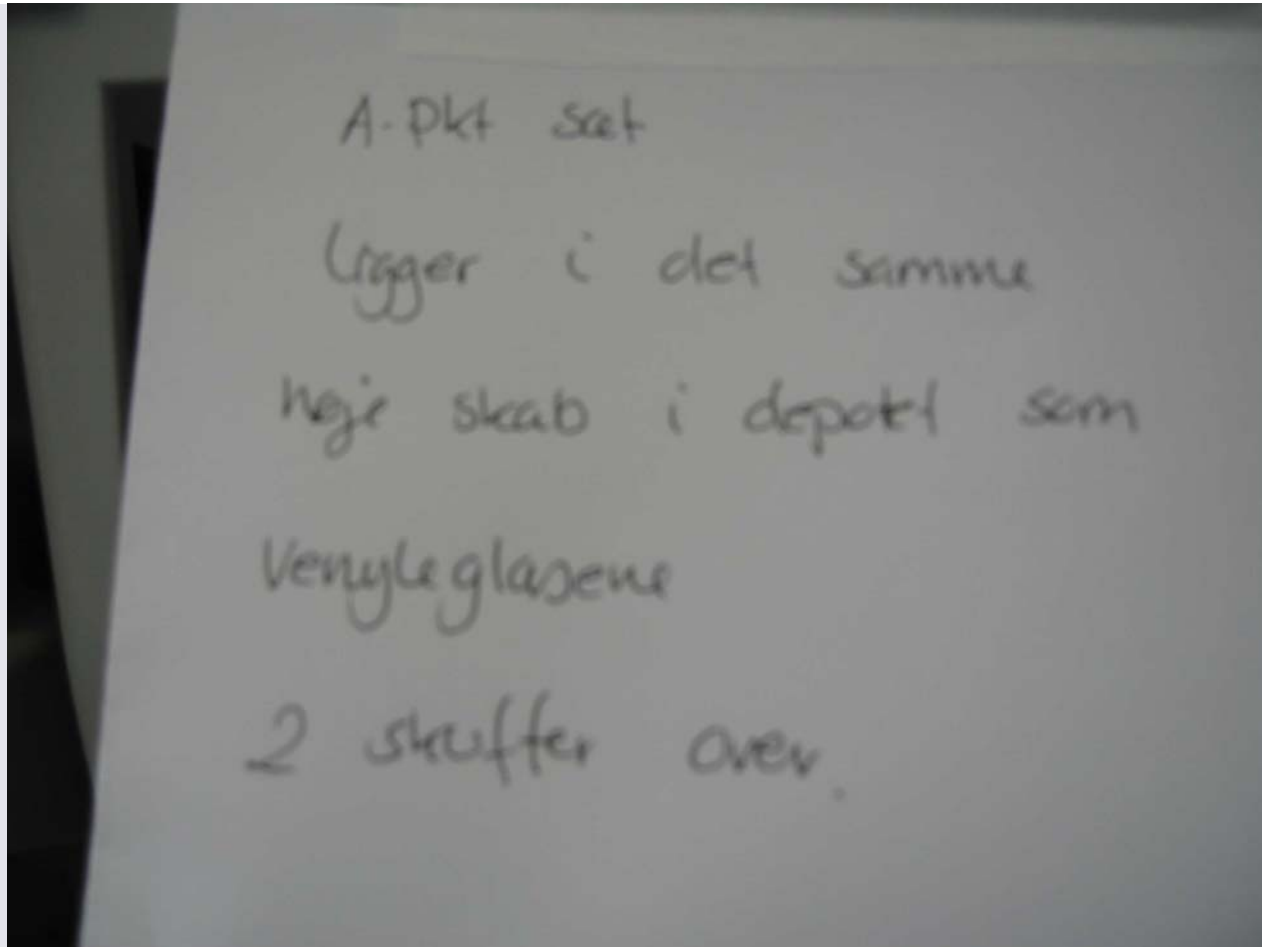 A-pkt sæt
ligger i det samme
høje skab i depotet som
Venyleglasene
2 skuffer over.